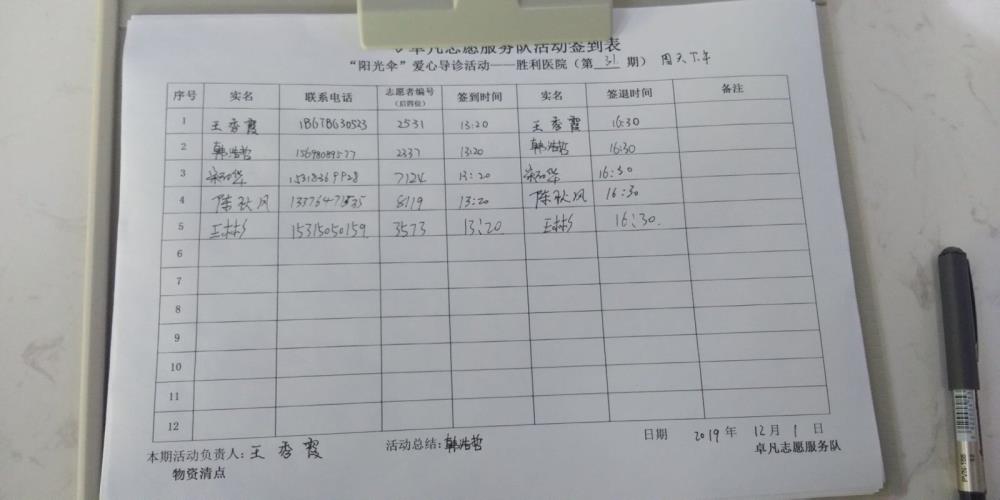 卓凡志愿服务队活动签到表
“阳光伞”爱心导诊活动——胜利医院（第 31 期） 周天下午
序号 实名 联系电话 志愿者编号（后四位） 签到时间 实名 签退时间 备注
1 王秀霞 18678630523 2531 13:20 王秀霞 16:30
2 韩浩哲 15698089577 2337 13:20 韩浩哲 16:30
3 15318369928 7124 13:20 16:30
4 陈秋风 8119 13:20 陈秋风 16:30
5 王彬 15315050159 3573 13:20 王彬 16:30
6
7
8
9
10
11
12
日期 2019年 12月 1日
本期活动负责人：王秀霞 活动总结：韩浩哲 卓凡志愿服务队
物资清点